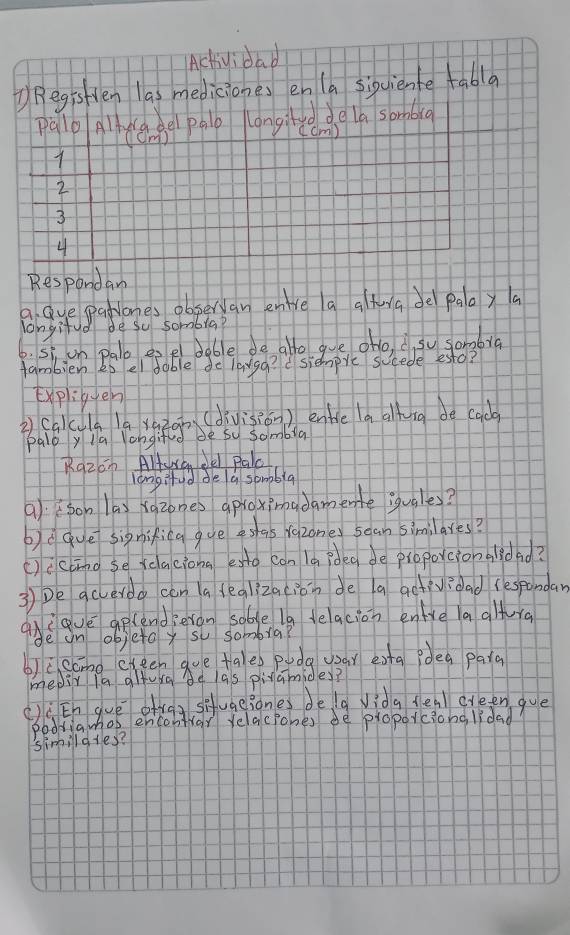 Actividad
1) Registren las mediciones en la siguiente tabla
Palo Altura del palo (Cm) Longitud de la sombra (Cm)
1
2
3
4
Respondan
a. Que patrones observan entre la altura del palo y la
longitud de su sombra?
b. si, un palo es el doble de alto que otro, ¿su sombra
tambien es el doble de larga? ¿ siempre sucede esto?
Expliquen
2) Calcula la razón (división) entre la altura de cada
palo y la longitud de su sombra
Razón Altura del Palo
longitud de la sombra
a). ¿son las razones aproximadamente iguales?
b) ¿ Qué significa que estas razones sean similares?
c) ¿ Cómo se relaciona esto con la idea de proporcionalidad?
3) De acuerdo con la realización de la actividad respondan
a) ¿Qué aprendieron sobre la relación entre la altura
de un objeto y su sombra?
b) ¿ Cómo creen que tales pudo usar esta idea para
medir la altura de las pirámides?
c) ¿ En que otras situaciones de la vida real creen que
podriamos encontrar relaciones de proporcionalidad
similares?